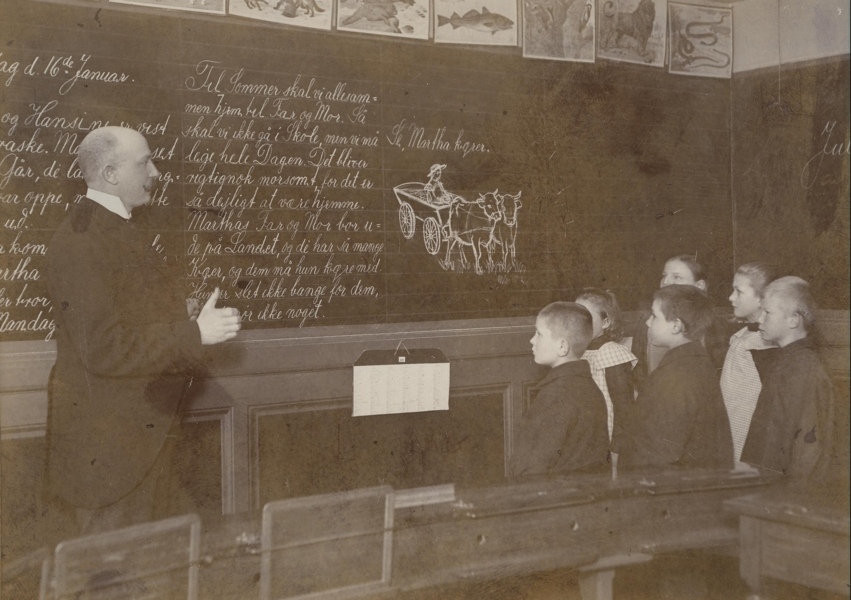 ag d. 16de Januar.
og Hansine er vist
vaske. Ma set
Går, de
ar oppe,
ud.
kom
artha
er bror,
Mandag
Til Sommer skal vi allesam=
men hjem til Far og Mor. Så
skal vi ikke gå i Skole, men vi må
lege hele Dagen. Det bliver
rigtignok morsomt, for det er
så dejligt at være hjemme.
Marthas Far og Mor bor u=
de på Landet, og de har så mange
Køer, og dem må hun køre med
slet ikke bange for dem,
or ikke noget.
Se, Martha kører.
Jul